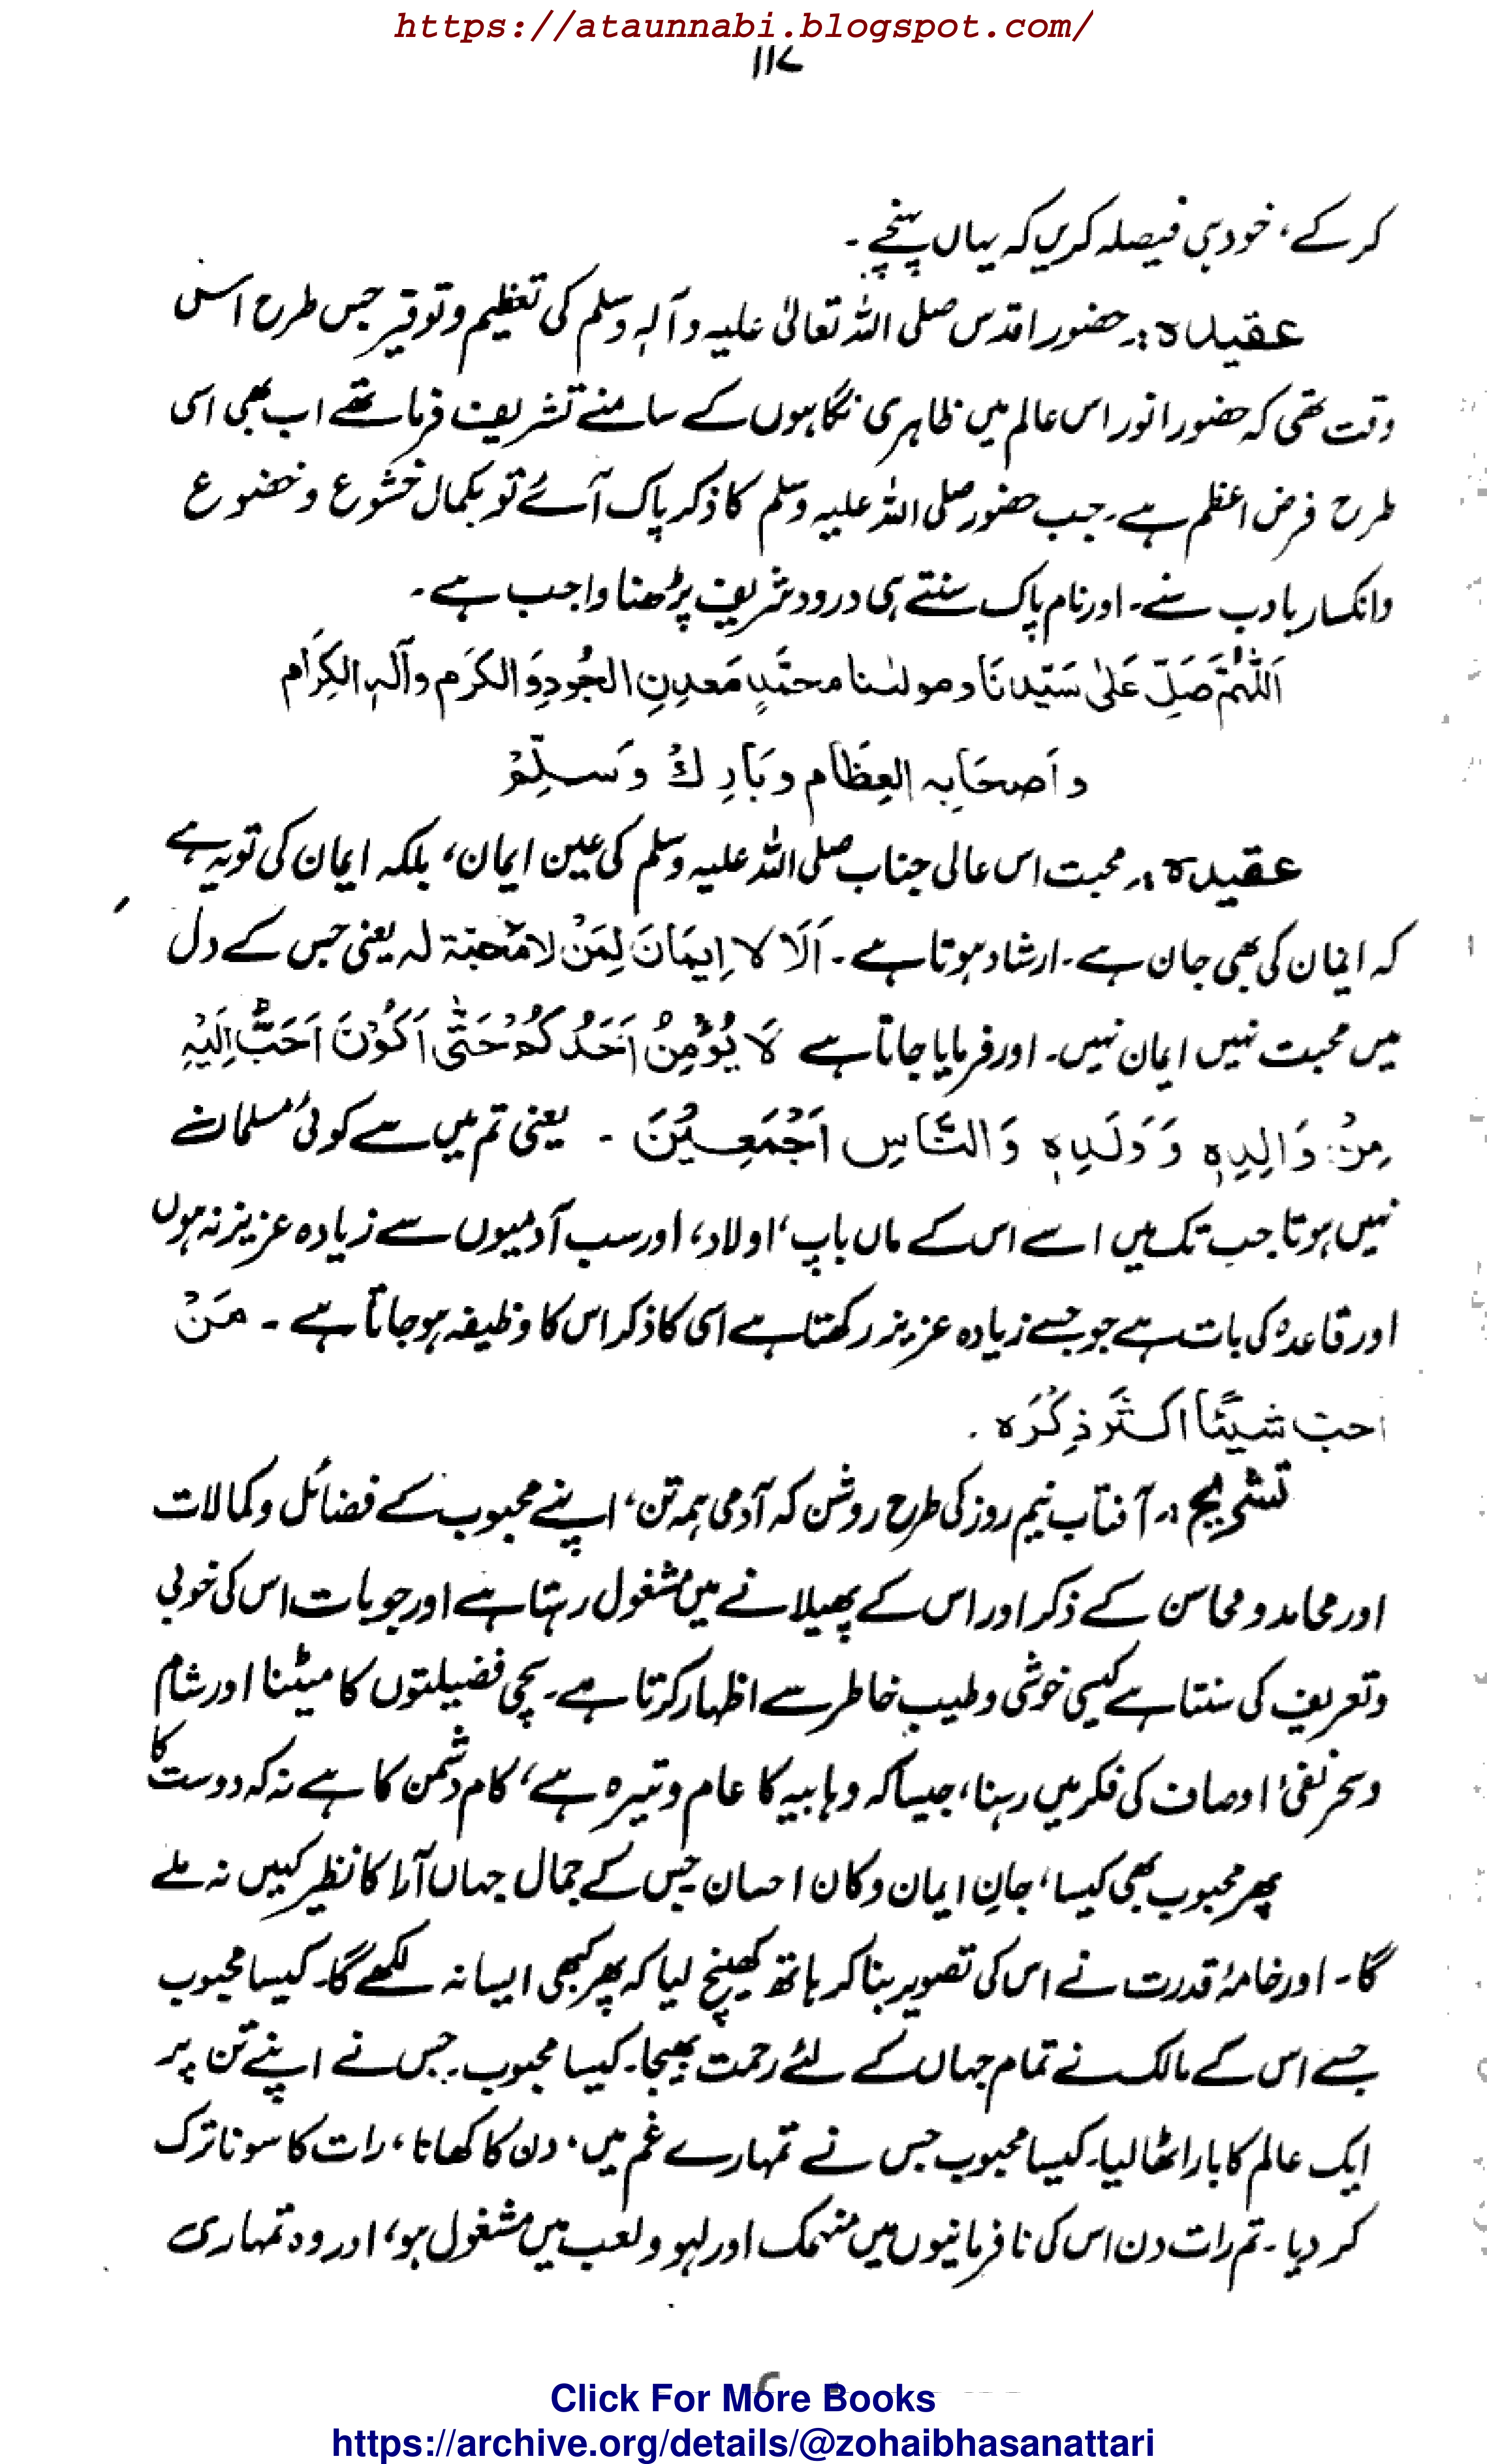 https://ataunnabi.blogspot.com/
۱۱۷
کرکے، خود ہی فیصلہ کریں کہ یہاں پہنچے۔
عقیدہ :۔ حضور اقدس صلی اللہ تعالیٰ علیہ وآلہٖ وسلم کی تعظیم و توقیر جس طرح اس
وقت تھی کہ حضور انور اس عالم میں ظاہری نگاہوں کے سامنے تشریف فرما تھے اب بھی اسی
طرح فرض اعظم ہے۔ جب حضور صلی اللہ علیہ وسلم کا ذکر پاک آئے تو بکمال خشوع و خضوع
وانکسار بادب سنے۔ اور نام پاک سنتے ہی درود شریف پڑھنا واجب ہے۔
اَللّٰہُمَّ صَلِّ عَلیٰ سَیِّدِنَا ومولٰنا محمَّدٍ مَعدِنِ الجُودِوَ الکرَم وآلہٖ الکِرَام
و اَصحَابِہ العِظَام وبَارِكْ وَسلِّمْ
عقیدہ :۔ محبت اس عالی جناب صلی اللہ علیہ وسلم کی عین ایمان، بلکہ ایمان کی تو یہ ہے
کہ ایمان کی بھی جان ہے۔ ارشاد ہوتا ہے۔ اَلَا لَا اِیمَانَ لِمَنْ لا مَحَبّۃ لہ یعنی جس کے دل
میں محبت نہیں ایمان نہیں۔ اور فرمایا جاتا ہے لَا یُؤْمِنُ اَحَدُکُمْ حَتّٰی اَکُوْنَ اَحَبَّ اِلَیْہِ
مِنْ وَالِدِہٖ وَوَلَدِہٖ وَالنَّاسِ اَجْمَعِیْنَ ۔ یعنی تم میں سے کوئی مسلمان
نہیں ہوتا جب تک میں اسے اس کے ماں باپ، اولاد، اور سب آدمیوں سے زیادہ عزیز نہ ہوں
اور قاعدہ کی بات ہے جو جسے زیادہ عزیز رکھتا ہے اسی کا ذکر اس کا وظیفہ ہوجاتا ہے ۔ مَنْ
احبّ شیئًا اکثَرَ ذِکْرَہ .
تشریح :۔ آفتاب نیم روز کی طرح روشن کہ آدمی ہمہ تن، اپنے محبوب کے فضائل و کمالات
اور محامد و محاسن کے ذکر اور اس کے پھیلانے میں مشغول رہتا ہے اور جو بات اس کی خوبی
وتعریف کی سنتا ہے کیسی خوشی و طیب خاطر سے اظہار کرتا ہے۔ سچی فضیلتوں کا میٹنا اور شام
وسحر نفیٔ اوصاف کی فکر میں رہنا، جیسا کہ وہابیہ کا عام وتیرہ ہے، کام دشمن کا ہے نہ کہ دوست کا
پھر محبوب بھی کیسا، جانِ ایمان وکان احسان جس کے جمال جہاں آرا کا نظیر کہیں نہ ملے
گا۔ اور خامۂ قدرت نے اس کی تصویر بنا کر ہاتھ کھینچ لیا کہ پھر کبھی ایسا نہ لکھے گا۔ کیسا محبوب
جسے اس کے مالک نے تمام جہاں کے لئے رحمت بھیجا۔ کیسا محبوب۔ جس نے اپنے تن پر
ایک عالم کا بار اٹھا لیا۔ کیسا محبوب جس نے تمہارے غم میں، دن کا کھانا، رات کا سونا ترک
کر دیا۔ تم رات دن اس کی نافرمانیوں میں منہمک اور لہو و لعب میں مشغول ہو، اور وہ تمہاری
Click For More Books
https://archive.org/details/@zohaibhasanattari